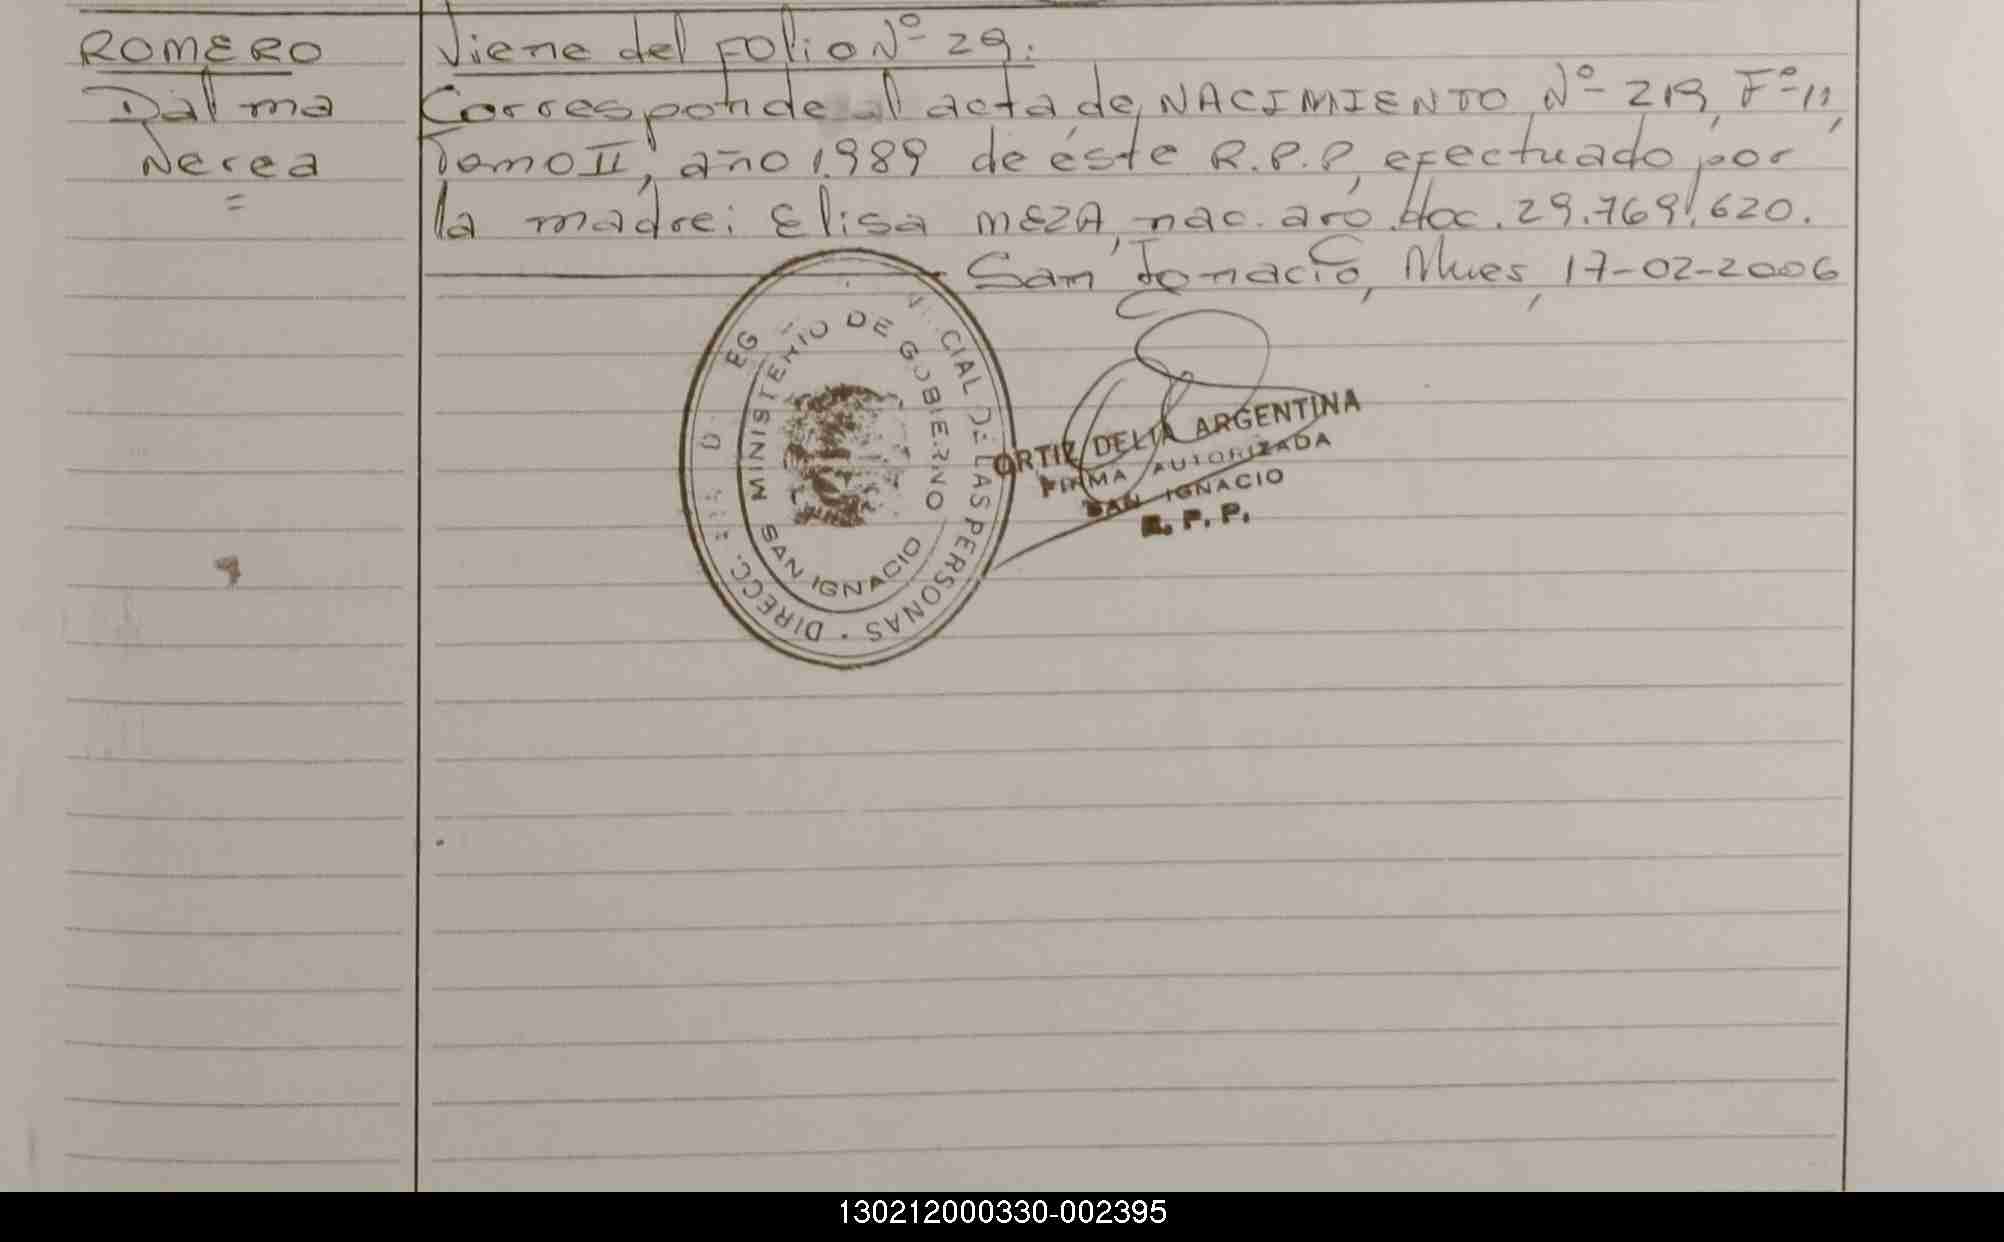 ROMERO
Dalma
Nerea
=
Viene del Folio Nº 29.
Corresponde al acta de NACIMIENTO Nº 219, Fº 11,
Tomo II, año 1.989 de éste R.P.P, efectuado por
la madre: Elisa MEZA, nac. arg. doc. 29.769.620.
San Ignacio, Mnes, 17-02-2006
MINISTERIO DE GOBIERNO
SAN IGNACIO
DIRECC.
CIAL DE LAS PERSONAS
ORTIZ DELIA ARGENTINA
FIRMA AUTORIZADA
SAN IGNACIO
R. P. P.
130212000330-002395